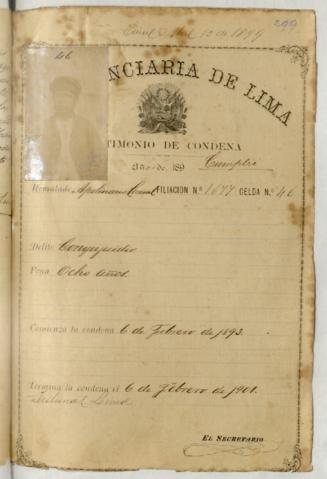 10 de 1899
299
46
NCIARIA DE LIMA
TIMONIO DE CONDENA
Año de 189 Cumplio
Rematado Apolinario FILIACION N.º 1677 CELDA N.º 46
Delito Conyujidio
Pena Ocho años
Comienza la condena 6 de Febrero de 1893.
Termina la condena el 6 de Febrero de 1901.
Tribunal
EL SECRETARIO